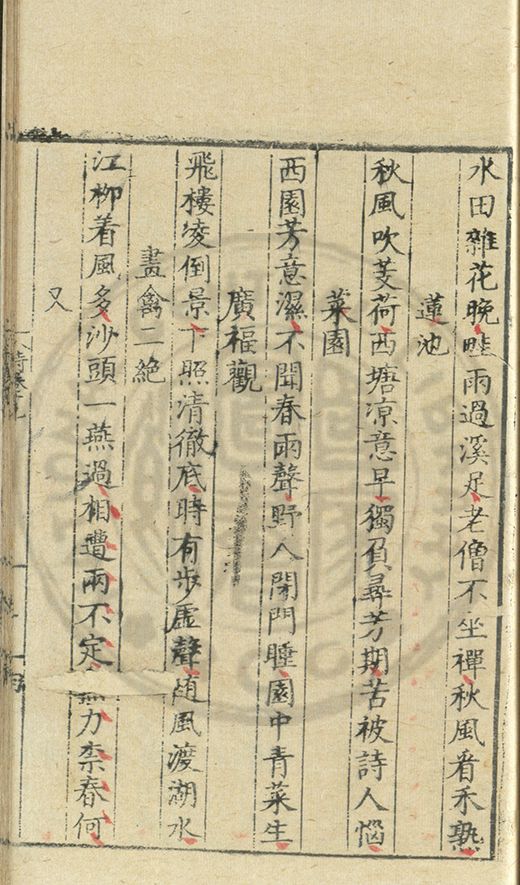 水田雜花晚畦雨過溪足老僧不坐禪秋風看禾熟
蓮池
秋風吹芰荷西塘凉意早獨負尋芳期苦被詩人惱
菜園
西園芳意濕不聞春雨聲野人閉門睡園中青菜生
廣福觀
飛樓凌倒景下照清徹底時有步虛聲随風渡湖水
畫禽二絶
江柳着風多沙頭一燕過相遭兩不定無力柰春何
又